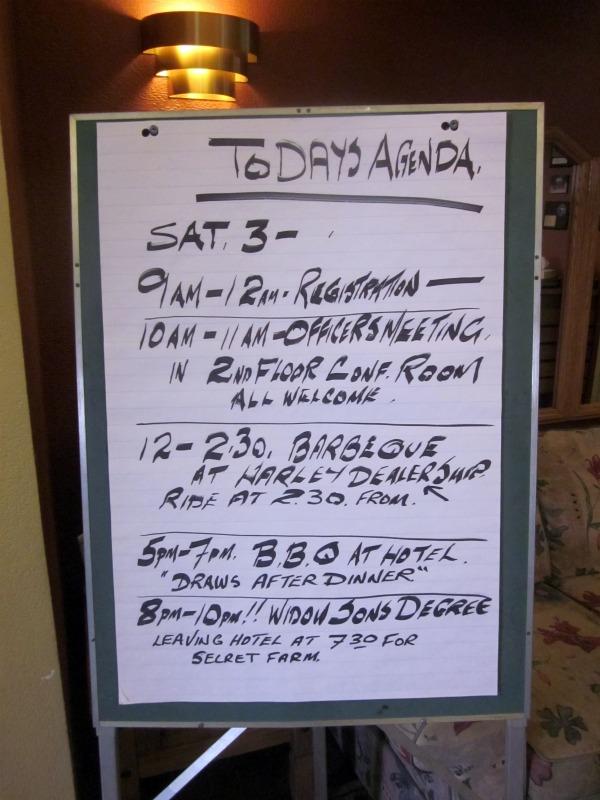 TODAYS AGENDA.
SAT. 3-
9AM-12AM-REGISTRATION —
10AM-11AM-OFFICERS MEETING.
IN 2ND FLOOR CONF. ROOM
ALL WELCOME.
12-2.30. BARBEQUE
AT HARLEY DEALERSHIP
RIDE AT 2.30. FROM. ↖
5PM-7PM. B.B.Q AT HOTEL.
"DRAWS AFTER DINNER"
8PM-10PM!! WIDOW SONS DEGREE
LEAVING HOTEL AT 7 30 FOR
SECRET FARM.